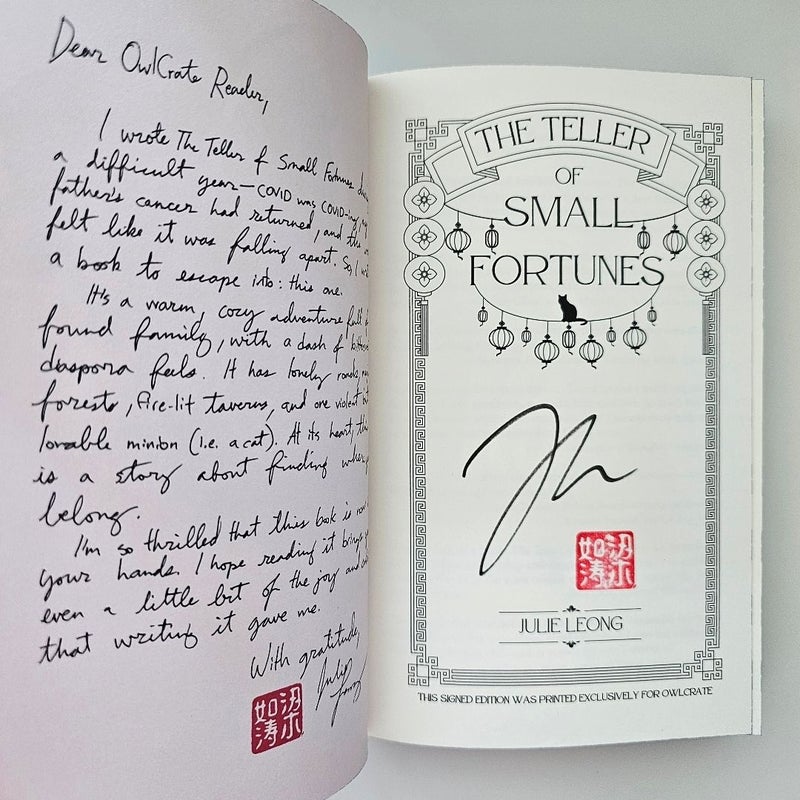 Dear OwlCrate Reader,
I wrote The Teller of Small Fortunes
a difficult year—COVID was COVID-ing, my
father's cancer had returned, and the
felt like it was falling apart. So, I
a book to escape into: this one.
It's a warm, cozy adventure full
found family, with a dash of
diaspora feels. It has lonely roads,
forests, fire-lit taverns, and one violent but
lovable minion (i.e. a cat). At its heart,
is a story about finding where
belong.
I'm so thrilled that this book is
your hands. I hope reading it brings
even a little bit of the joy and
that writing it gave me.
With gratitude,
Julie
Leong
如涛
THE TELLER
OF
SMALL
FORTUNES
如涛
JULIE LEONG
THIS SIGNED EDITION WAS PRINTED EXCLUSIVELY FOR OWLCRATE